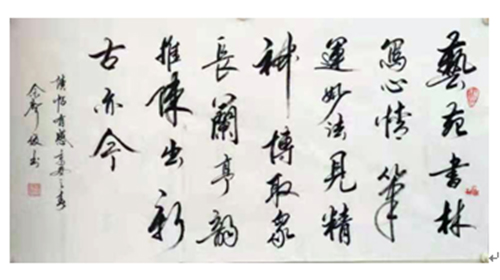 藝苑書林
寫心情筆
運妙法見精
神博取衆
長蘭亭韵
推陳出新
古亦今
讀帖有感
书